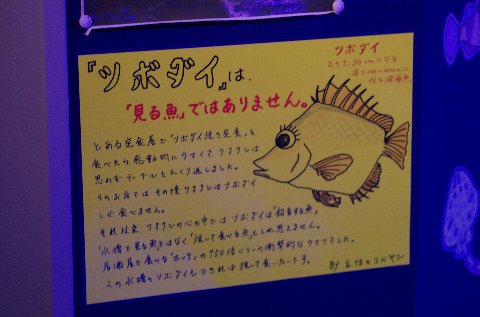 『ツボダイ』は、
「見る魚」ではありません。
ツボダイ
大きさ:30cmになる
とある定食屋で「ツボダイ焼き定食」を
食べたら、感動的にウマくて、ワタクシは
思わずテーブルをひっくり返しました。
そのお店では、その後ワタクシはツボダイ
しか食べません。
それ以来、ワタクシの心の中では、ツボダイは「飼育する魚」
「水槽で見る魚」ではなく「焼いて食べる魚」としか思えません。
居酒屋で食べる「ホッケ」の750倍くらいの衝撃的なウマさでした。
この水槽のツボダイもできれば焼いて食いたいです。
By 主任のコバヤシ